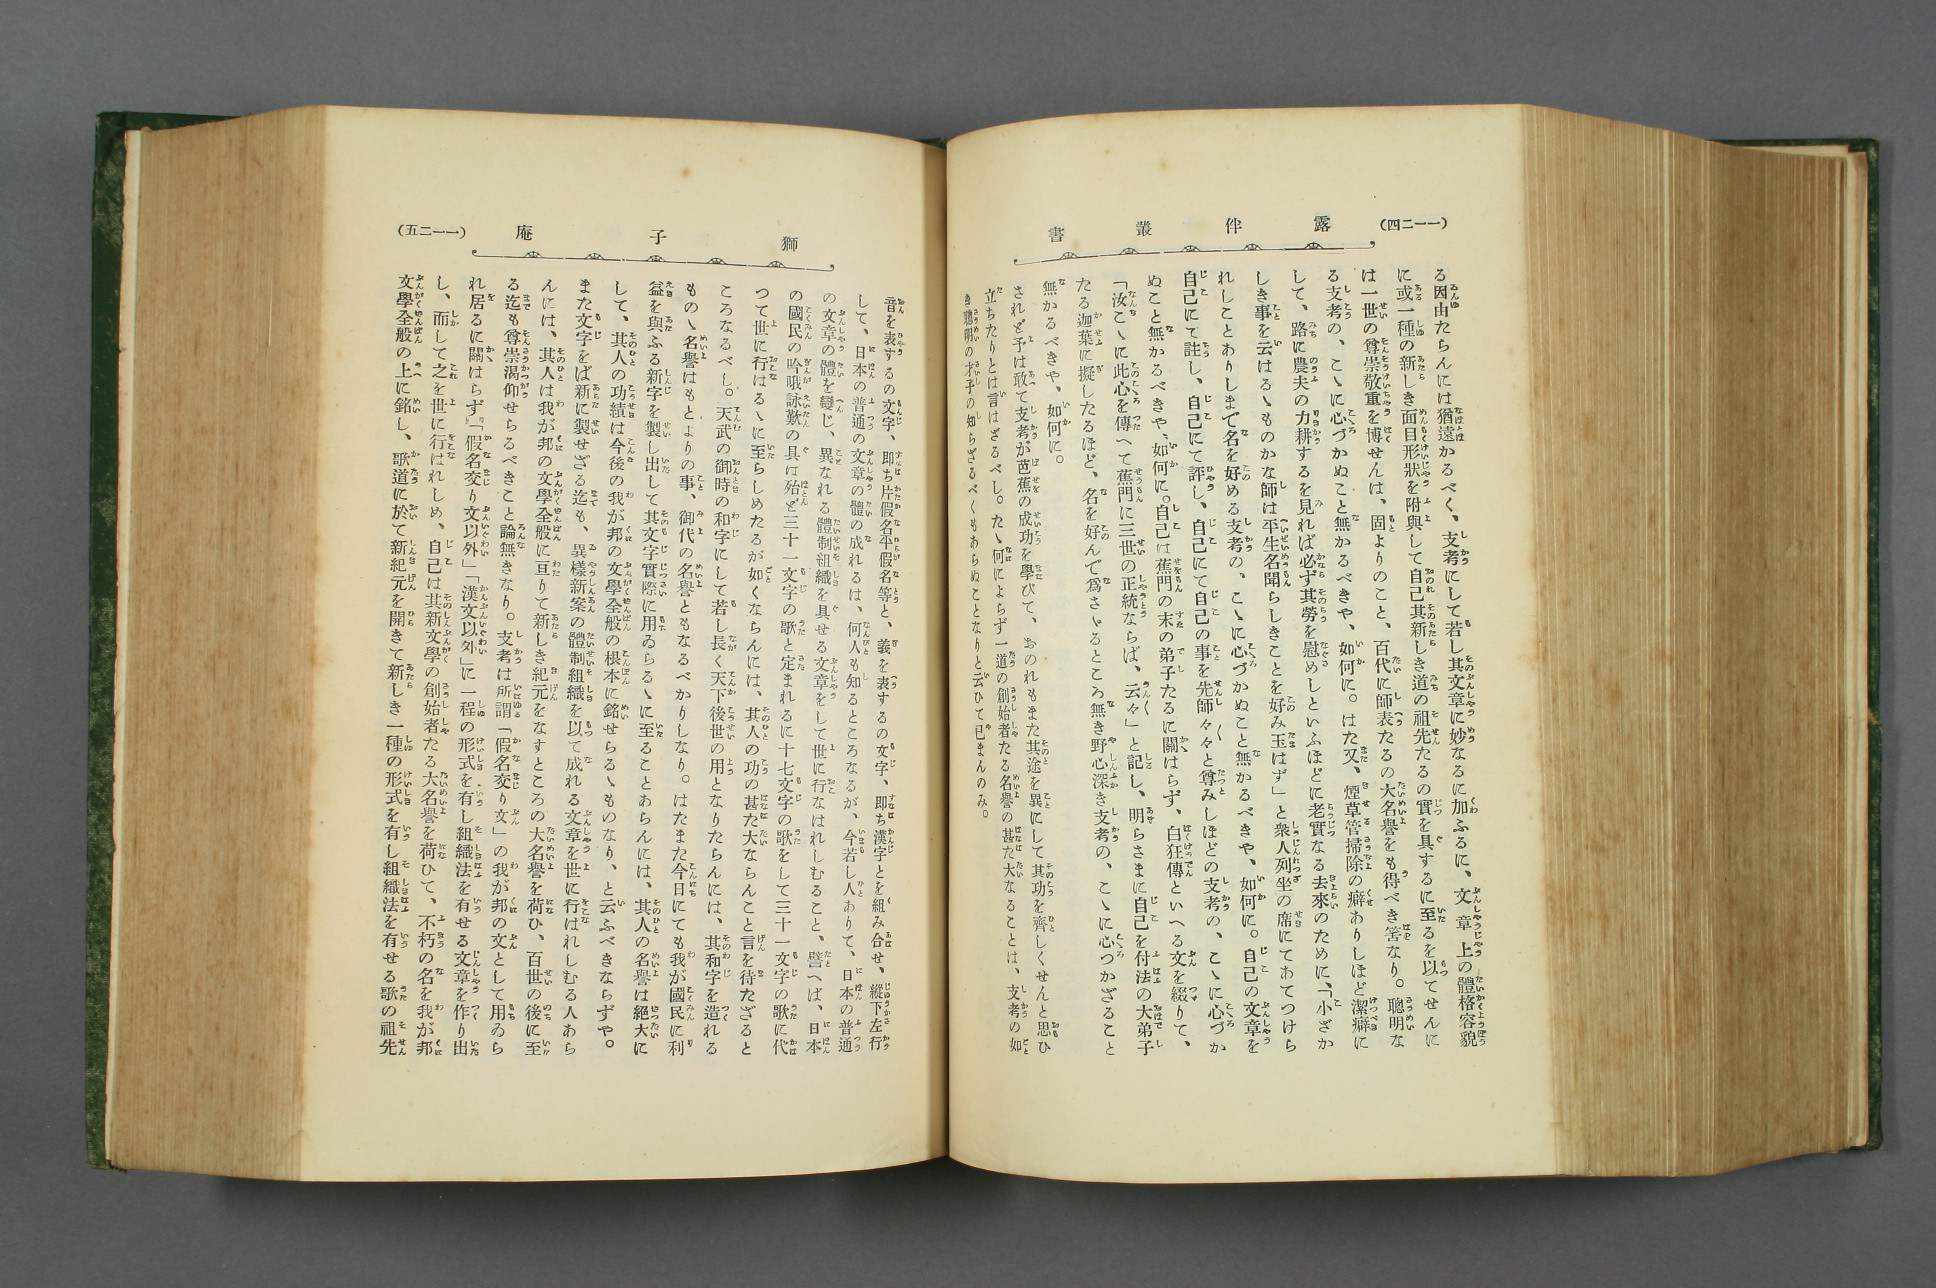 (一一二四)
露伴叢書
る因由たらんには猶遠かるべく、支考にして若し其文章に妙なるに加ふるに、文章上の體格容貌
に或一種の新しき面目形狀を附與して自己其新しき道の祖先たるの實を具するに至るを以てせんに
は一世の尊崇敬重を博せんは、固よりのこと、百代に師表たるの大名譽をも得べき筈なり。聰明な
る支考の、こゝに心づかぬこと無かるべきや、如何に。はた又、煙草管掃除の癖ありしほど潔癖に
して、路に農夫の力耕するを見れば必ず其勞を慰めしといふほどに老實なる去來のために、「小ざか
しき事を云はるゝものかな師は平生名聞らしきことを好み玉はず」と衆人列坐の席にてあてつけら
れしことありしまで名を好める支考の、こゝに心づかぬこと無かるべきや、如何に。自己の文章を
自己にて註し、自己にて評し、自己にて自己の事を先師々々と尊みしほどの支考の、こゝに心づか
ぬこと無かるべきや、如何に。自己は蕉門の末の弟子たるに關はらず、自狂傳といへる文を綴りて、
「汝こゝに此心を傳へて蕉門に三世の正統ならば、云々」と記し、明らさまに自己を付法の大弟子
たる迦葉に擬したるほど、名を好んで爲さゞるところ無き野心深き支考の、こゝに心つかざること
無かるべきや、如何に。
されど予は敢て支考が芭蕉の成功を學びて、おのれもまた其途を異にして其功を齊しくせんと思ひ
立ちたりとは言はざるべし。たゞ何によらず一道の創始者たる名譽の甚た大なることは、支考の如
き聰明の才子の知らざるべくもあらぬことなりと云ひて已まんのみ。
獅子庵
(一一二五)
音を表するの文字、即ち片假名平假名等と、義を表するの文字、即ち漢字とを組み合せ、縱下左行
して、日本の普通の文章の體の成れるは、何人も知るところなるが、今若し人ありて、日本の普通
の文章の體を變じ、異なれる體制組織を具せる文章をして世に行なはれしむること、譬へば、日本
の國民の吟哦詠歎の具は殆ど三十一文字の歌と定まれるに十七文字の歌をして三十一文字の歌に代
つて世に行はるゝに至らしめたるが如くならんには、其人の功の甚はた大ならんこと言を待たざると
ころなるべし。天武の御時の和字にして若し長く天下後世の用となりたらんには、其和字を造れる
ものゝ名譽はもとよりの事、御代の名譽ともなるべかりしなり。はたまた今日にても我が國民に利
益を與ふる新字を製し出して其文字實際に用ゐらるゝに至ることあらんには、其人の名譽は絕大に
して、其人の功績は今後の我が邦の文學全般の根本に銘せらるゝものなり、と云ふべきならずや。
また文字をば新に製せざる迄も、異樣新案の體制組織を以て成れる文章を世に行はれしむる人あら
んには、其人は我が邦の文學全般に亘りて新しき紀元をなすところの大名譽を荷ひ、百世の後に至
る迄も尊崇渴仰せらるべきこと論無きなり。支考は所謂「假名交り文」の我が邦の文として用ゐら
れ居るに關はらず、「假名交り文以外」「漢文以外」に一程の形式を有し組織法を有せる文章を作り出
し、而して之を世に行はれしめ、自己は其新文學の創始者たる大名譽を荷ひて、不朽の名を我が邦
文學全般の上に銘し、歌道に於て新紀元を開きて新しき一種の形式を有し組織法を有せる歌の祖先